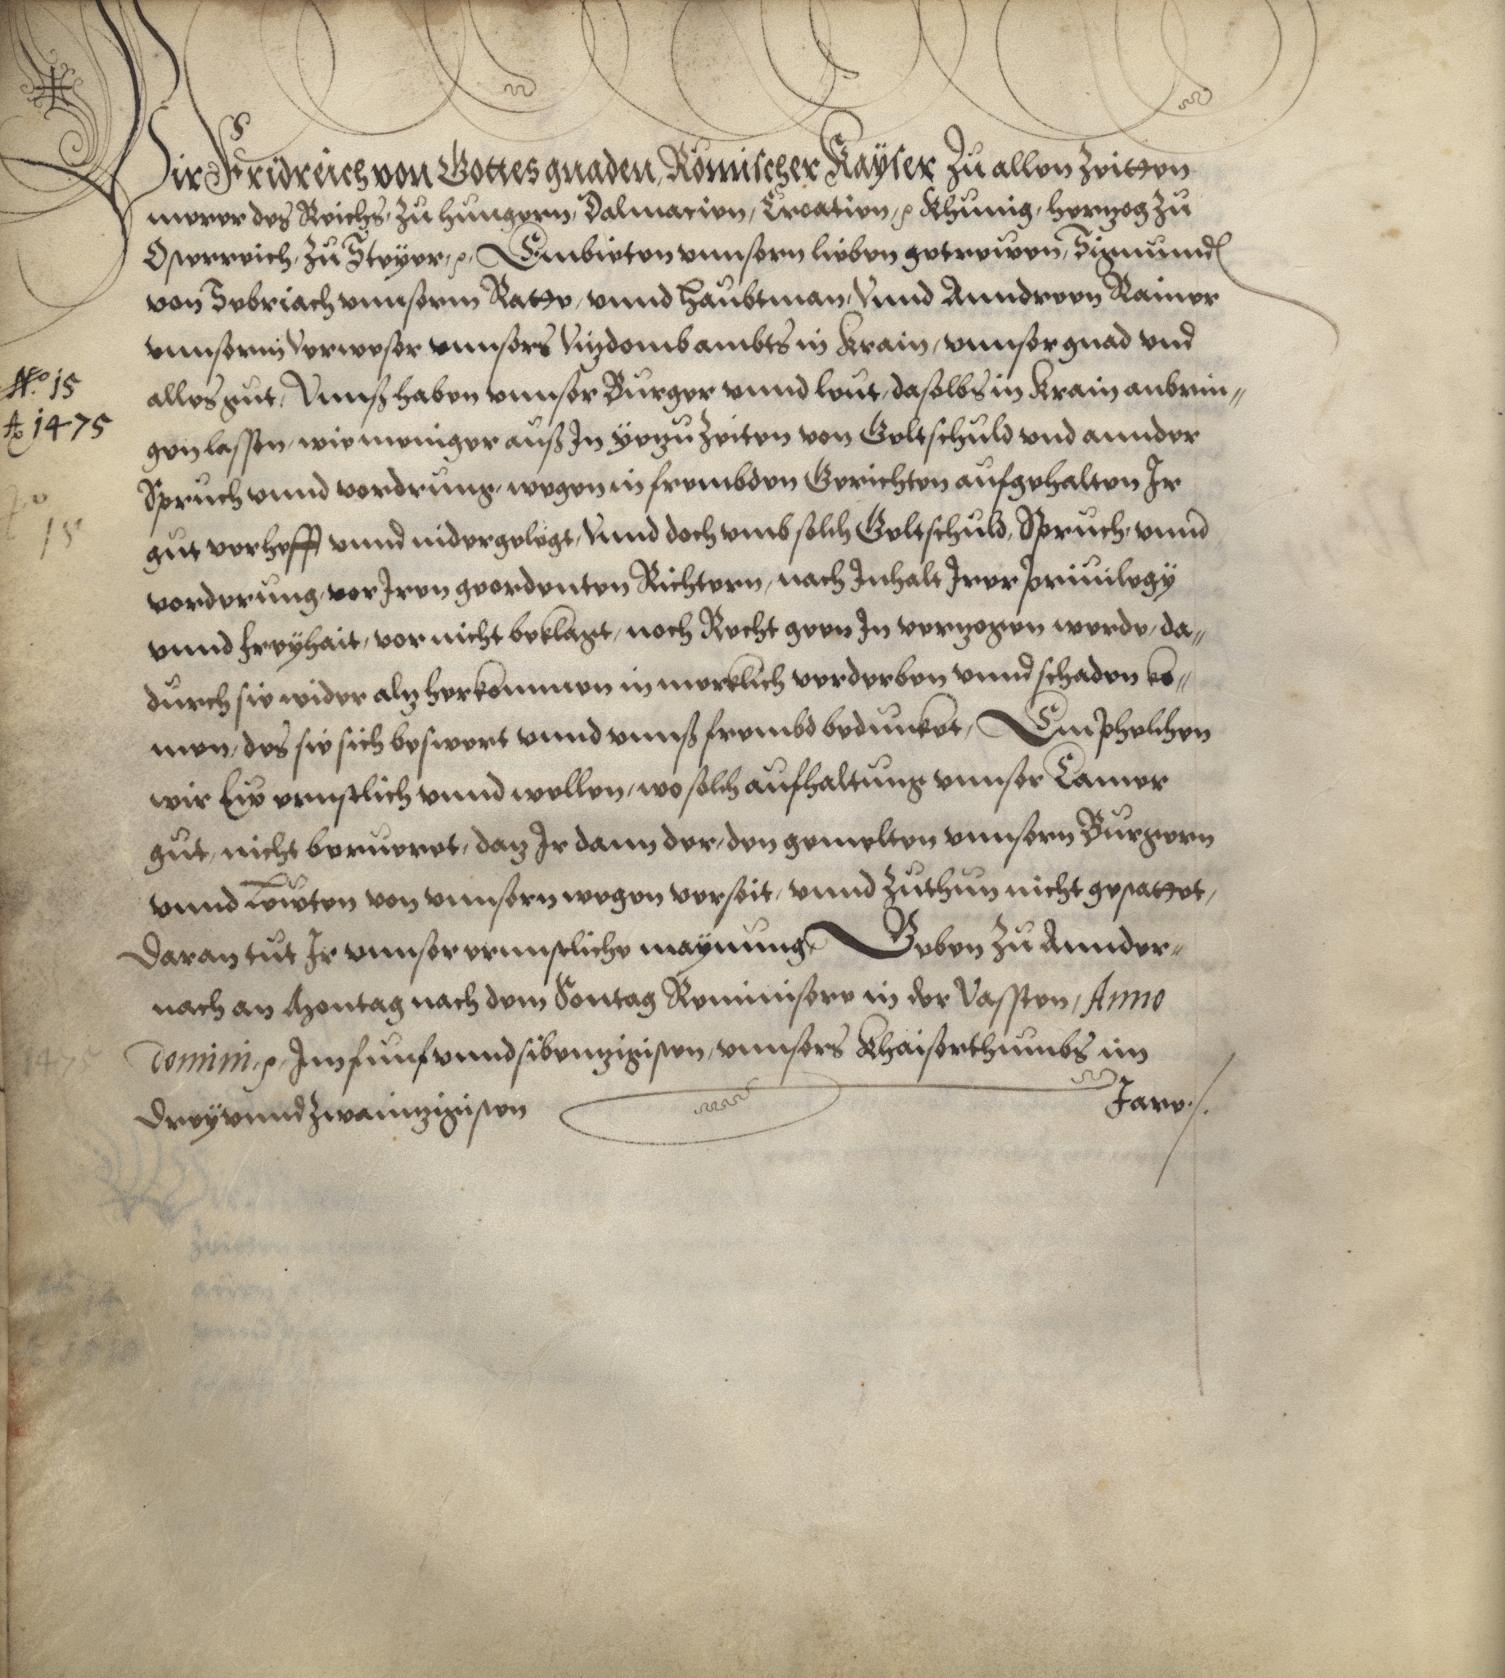 Wir Fridreich von Gottes gnaden, Römischer Kayser Zu allen Zeitten
merer des Reichs, Zu Hungern, Dalmacien, Croatien, ꝛc. Khunig, Hertzog Zu
Osterreich, Zu Steyer, ꝛc. Embieten unnsern lieben getrewen, Sigmunden
von Sebriach unnserm Ratte, unnd Haubtman, Unnd Anndreen Rainer
unnserm Verweser unnsers Vitzdombambts in Krain, unnser gnad und
No. 15
alles gut, Unnß haben unnser Burger unnd leut, daselbs in Krain anbrin„
Ao 1475
gen lassen, wie meniger auß In yetzu Zeiten von Geltschuld und annder
Spruch unnd vordrung, wegen in frembden Gerichten aufgehalten Ir
15
gut verhefft unnd nidergelegt, Unnd doch umb solch Geltschuld, Spruch, unnd
vorderung, vor Iren geordenten Richtern, nach Inhalt Irer priuilegy
unnd Freyhait, vor nicht beklagt, noch Recht geen In vertzogen werde, da„
durch sie wider altz herkommen in merklich verderben unnd schaden ko„
men, des sie sich beswert unnd unnß frembd bedunket, Emphelhen
wir Ew ernstlich unnd wellen, wo solch aufhaltung unnser Camer
gut, nicht berueret, daz Ir dann der, den gemelten unnsern Burgern
unnd Lewten von unnsern wegen verseit, unnd Zuthun nicht gestattet,
Daran tut Ir unnser ernnstliche maynung, Geben Zu Annder„
nach an Montag nach dem Sontag Reminisere in der Vassten, Anno
Domini, ꝛc. Im funf unnd sibentzigisten, unnsers Khaiserthumbs im
Drey unnd Zwaintzigisten Jare.